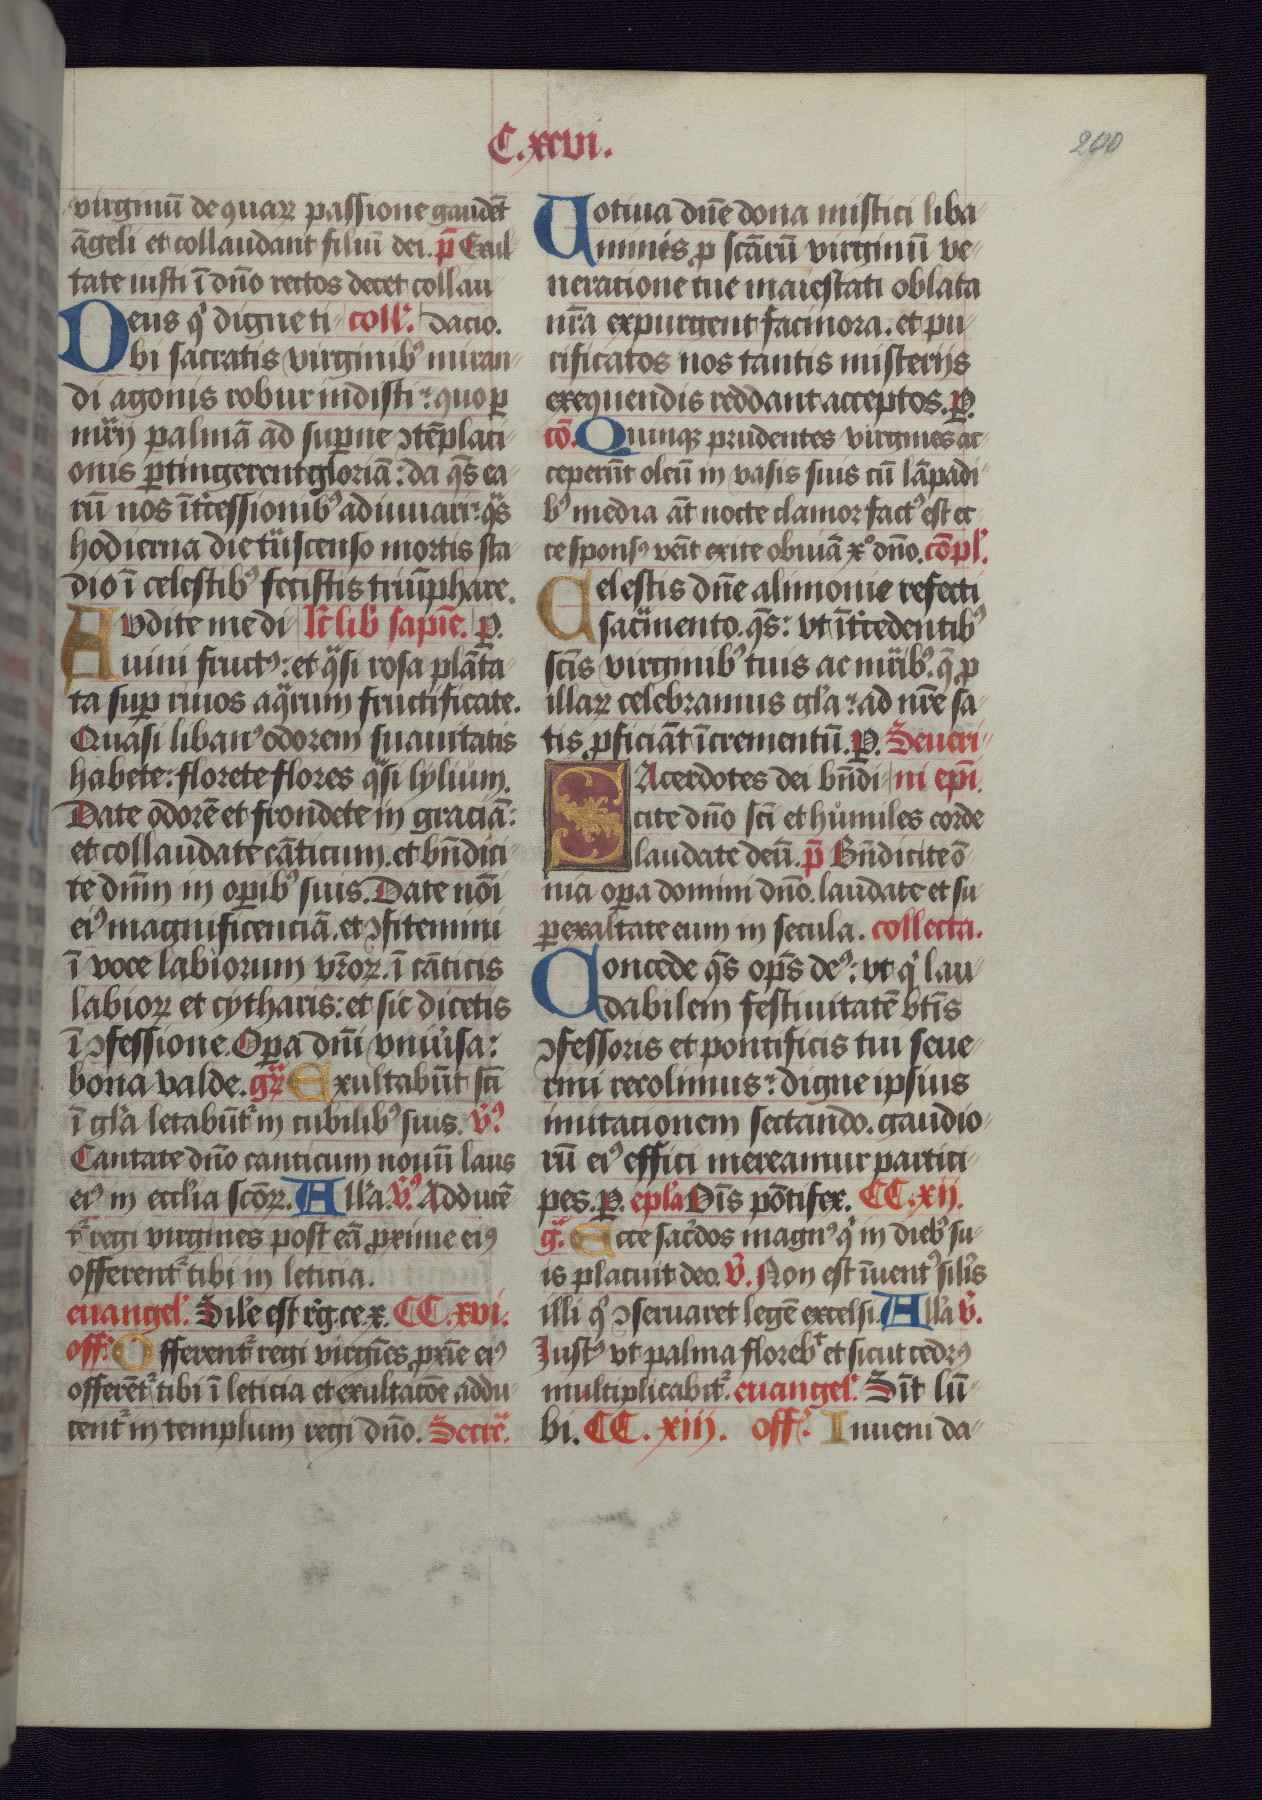 C.xxvi.
200
virginū de quaꝝ passione gaudēt
āgeli et collaudant filiū dei. p̄ Exul-
tate iusti ī dn̄o rectos decet collau
Deus qͥ digne ti- coll'. dacio.
bi sacratis virginibꝰ miran-
di agonis robur indisti: quo ꝑ
mr̄ij palmā ad suꝑne ꝯtēplaci-
onis ꝑtingerent gloriā: da qs̄ ea-
rū nos īt'cessionibꝰ adiuuari: qͣs
hodierna die tͣnscenso mortis sta-
dio ī celestibꝰ fecistis triūphare.
Audite me di- lc̄ lib' sapīe. P.
uini fructꝰ: et qͣsi rosa plāta-
ta suꝑ riuos aqͣrum fructificate.
Quasi libanꝰ odorem suauitatis
habete: florete flores qͣsi lylium.
Date odorē et frondete in graciā:
et collaudate cāticum. et bn̄dici-
te dn̄m in oꝑibꝰ suis. Date nōi
eiꝰ magnificenciā. et ꝯfitemini
ī voce labiorum vr̄oꝝ. ī cāticis
labioꝝ et cytharis: et sic dicetis
ī ꝯfessione. Oꝑa dn̄i vniu'sa:
bona valde. gr̄ Exultabūt scī
ī gl'a letabūt' in cubilibꝰ suis. v̄ꝰ
Cantate dn̄o canticum nouū laus
eiꝰ in eccl'ia scōꝝ. All'a. v̄ꝰ Adducē-
t' regi virgines post eā ꝓxime eiꝰ
offerent' tibi in leticia.
euangel'. Sil'e est rḡ. ce. x. CC.xvi.
off'. Offerent' regi virgīes ꝓxīe eiꝰ
offerēt' tibi ī leticia et exultacōe addu-
cent' in templum regi dn̄o. Secr̄.
Uotiua dn̄e dona mistici liba-
minis ꝓ scārū virginū ve-
neratione tue maiestati oblata
nr̄a expurgent facinora. et pu-
rificatos nos tantis misterijs
exequendis reddant acceptos. P.
cō. Quinqꝫ prudentes virgines ac-
ceperūt oleū in vasis suis cū lāpadi-
bꝰ media āt nocte clamor factꝰ est ec-
ce sponsꝰ venīt exite obuiā xͦ dn̄o. cōpl'.
Celestis dn̄e alimonie refecti
sacͣmento. qs̄: vt īt'cedentibꝰ
scīs virginibꝰ tuis ac mr̄ibꝰ. q̄ ꝓ
illaꝝ celebramus gl'a: ad nr̄e sa-
tis ꝓficiāt īcrementū. P. Seueri-
SAcerdotes dei bn̄di- ni epī.
cite dn̄o scī et humiles corde
laudate deū. p̄ Bn̄dicite ō-
nia oꝑa domini dn̄o. laudate et su-
ꝑexaltate eum in secula. collecta.
Concede qs̄ opS̄ deꝰ: vt qͥ lau-
dabilem festiuitatē btīs
ꝯfessoris et pontificis tui seue-
rini recolimus: digne ipsius
imitacionem sectando. gaudio-
rū eiꝰ effici mereamur partici-
pes. P. epl'a Oīs pōtifex. CC.xij.
gͣ. Ecce sac'dos magnꝰ qͥ in diebꝰ su-
is placuit deo. v̄. Non est īuentꝰ sil'is
illi qͥ ꝯseruaret legē excelsi. All'a v̄.
Justꝰ vt palma florebͭ et sicut cedrꝰ
multiplicabit'. euangel'. Sīt lū-
bi. CC.xiij. off'. Inueni da-